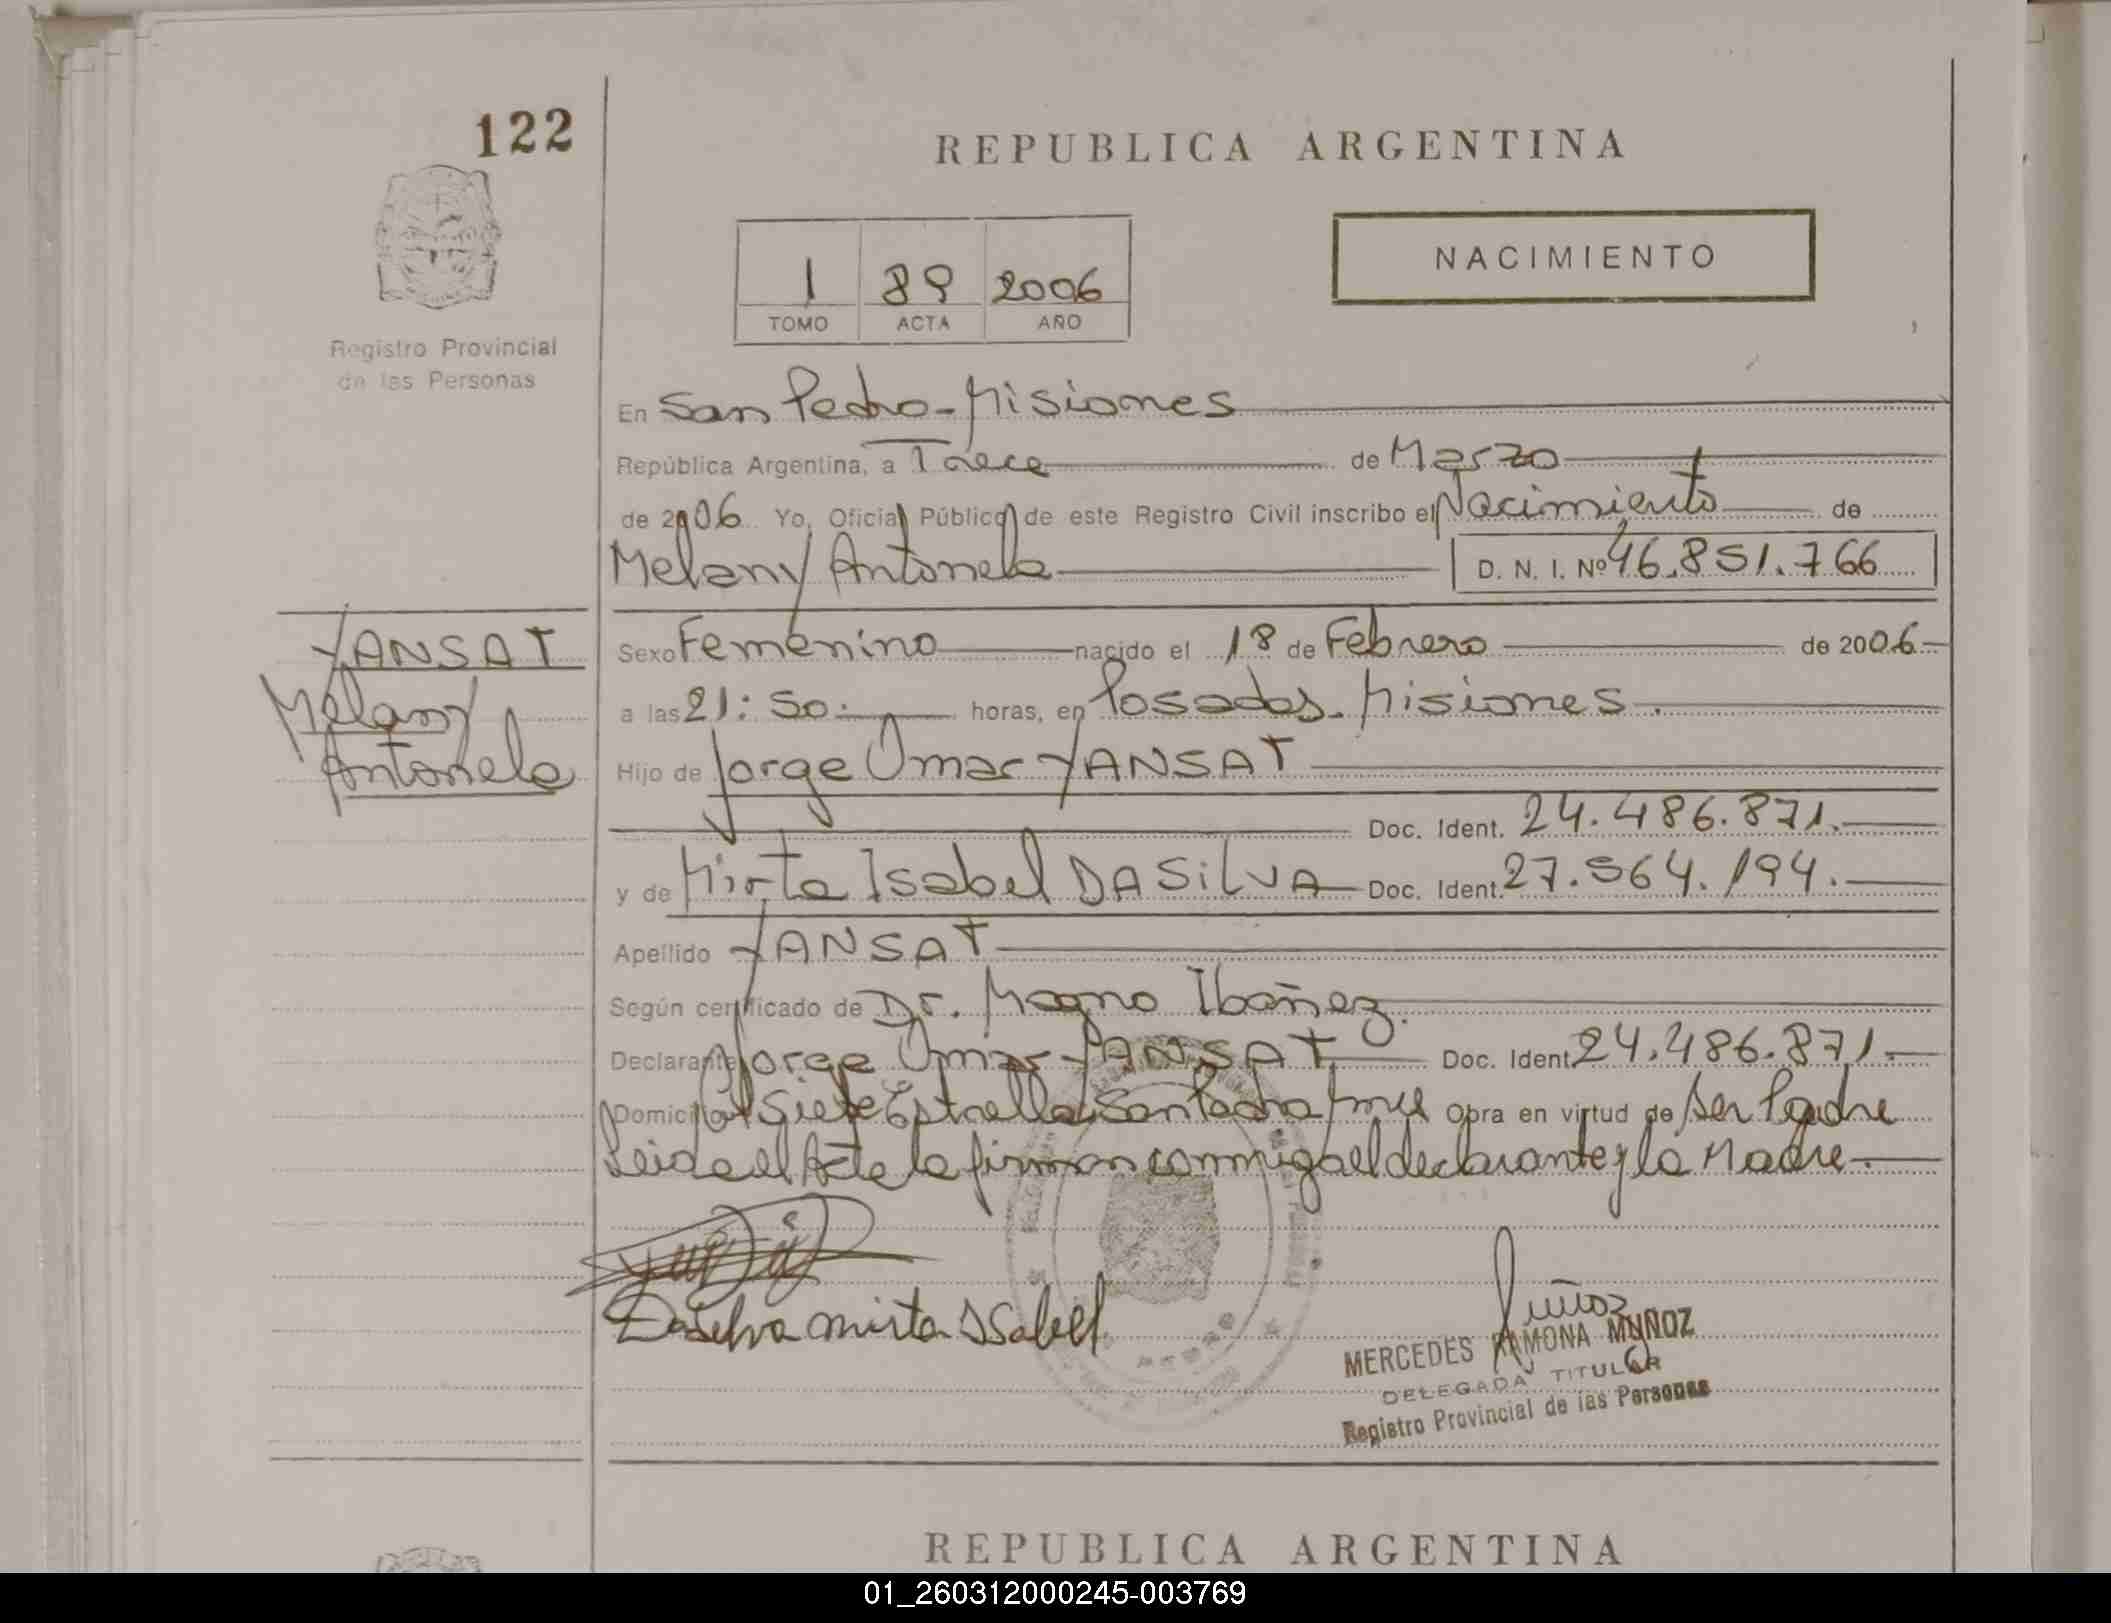 122
REPUBLICA ARGENTINA
Registro Provincial
de las Personas
1 89 2006
TOMO ACTA AÑO
NACIMIENTO
En San Pedro - Misiones
República Argentina, a Trece de Marzo
de 2006 Yo, Oficial Público de este Registro Civil inscribo el Nacimiento de
Melany Antonela D. N. I. Nº 46.851.766
YANSAT
Melany
Antonela
Sexo Femenino nacido el 18 de Febrero de 2006
a las 21:50. horas, en Posadas - Misiones.
Hijo de Jorge Omar YANSAT
Doc. Ident. 24.486.871.
y de Mirta Isabel DA SILVA Doc. Ident. 27.564.194.
Apellido YANSAT
Según certificado de Dr. Magno Ibañez.
Declarante Jorge Omar YANSAT Doc. Ident. 24.486.871.
Domicilio Siete Estrellas San Pedro Mnes Obra en virtud de ser Padre
Leida el Acta la firman conmigo el declarante y la Madre.
Da silva mirta Isabel
Muñoz
MERCEDES RAMONA MUÑOZ
DELEGADA TITULAR
Registro Provincial de las Personas
REPUBLICA ARGENTINA
01_260312000245-003769